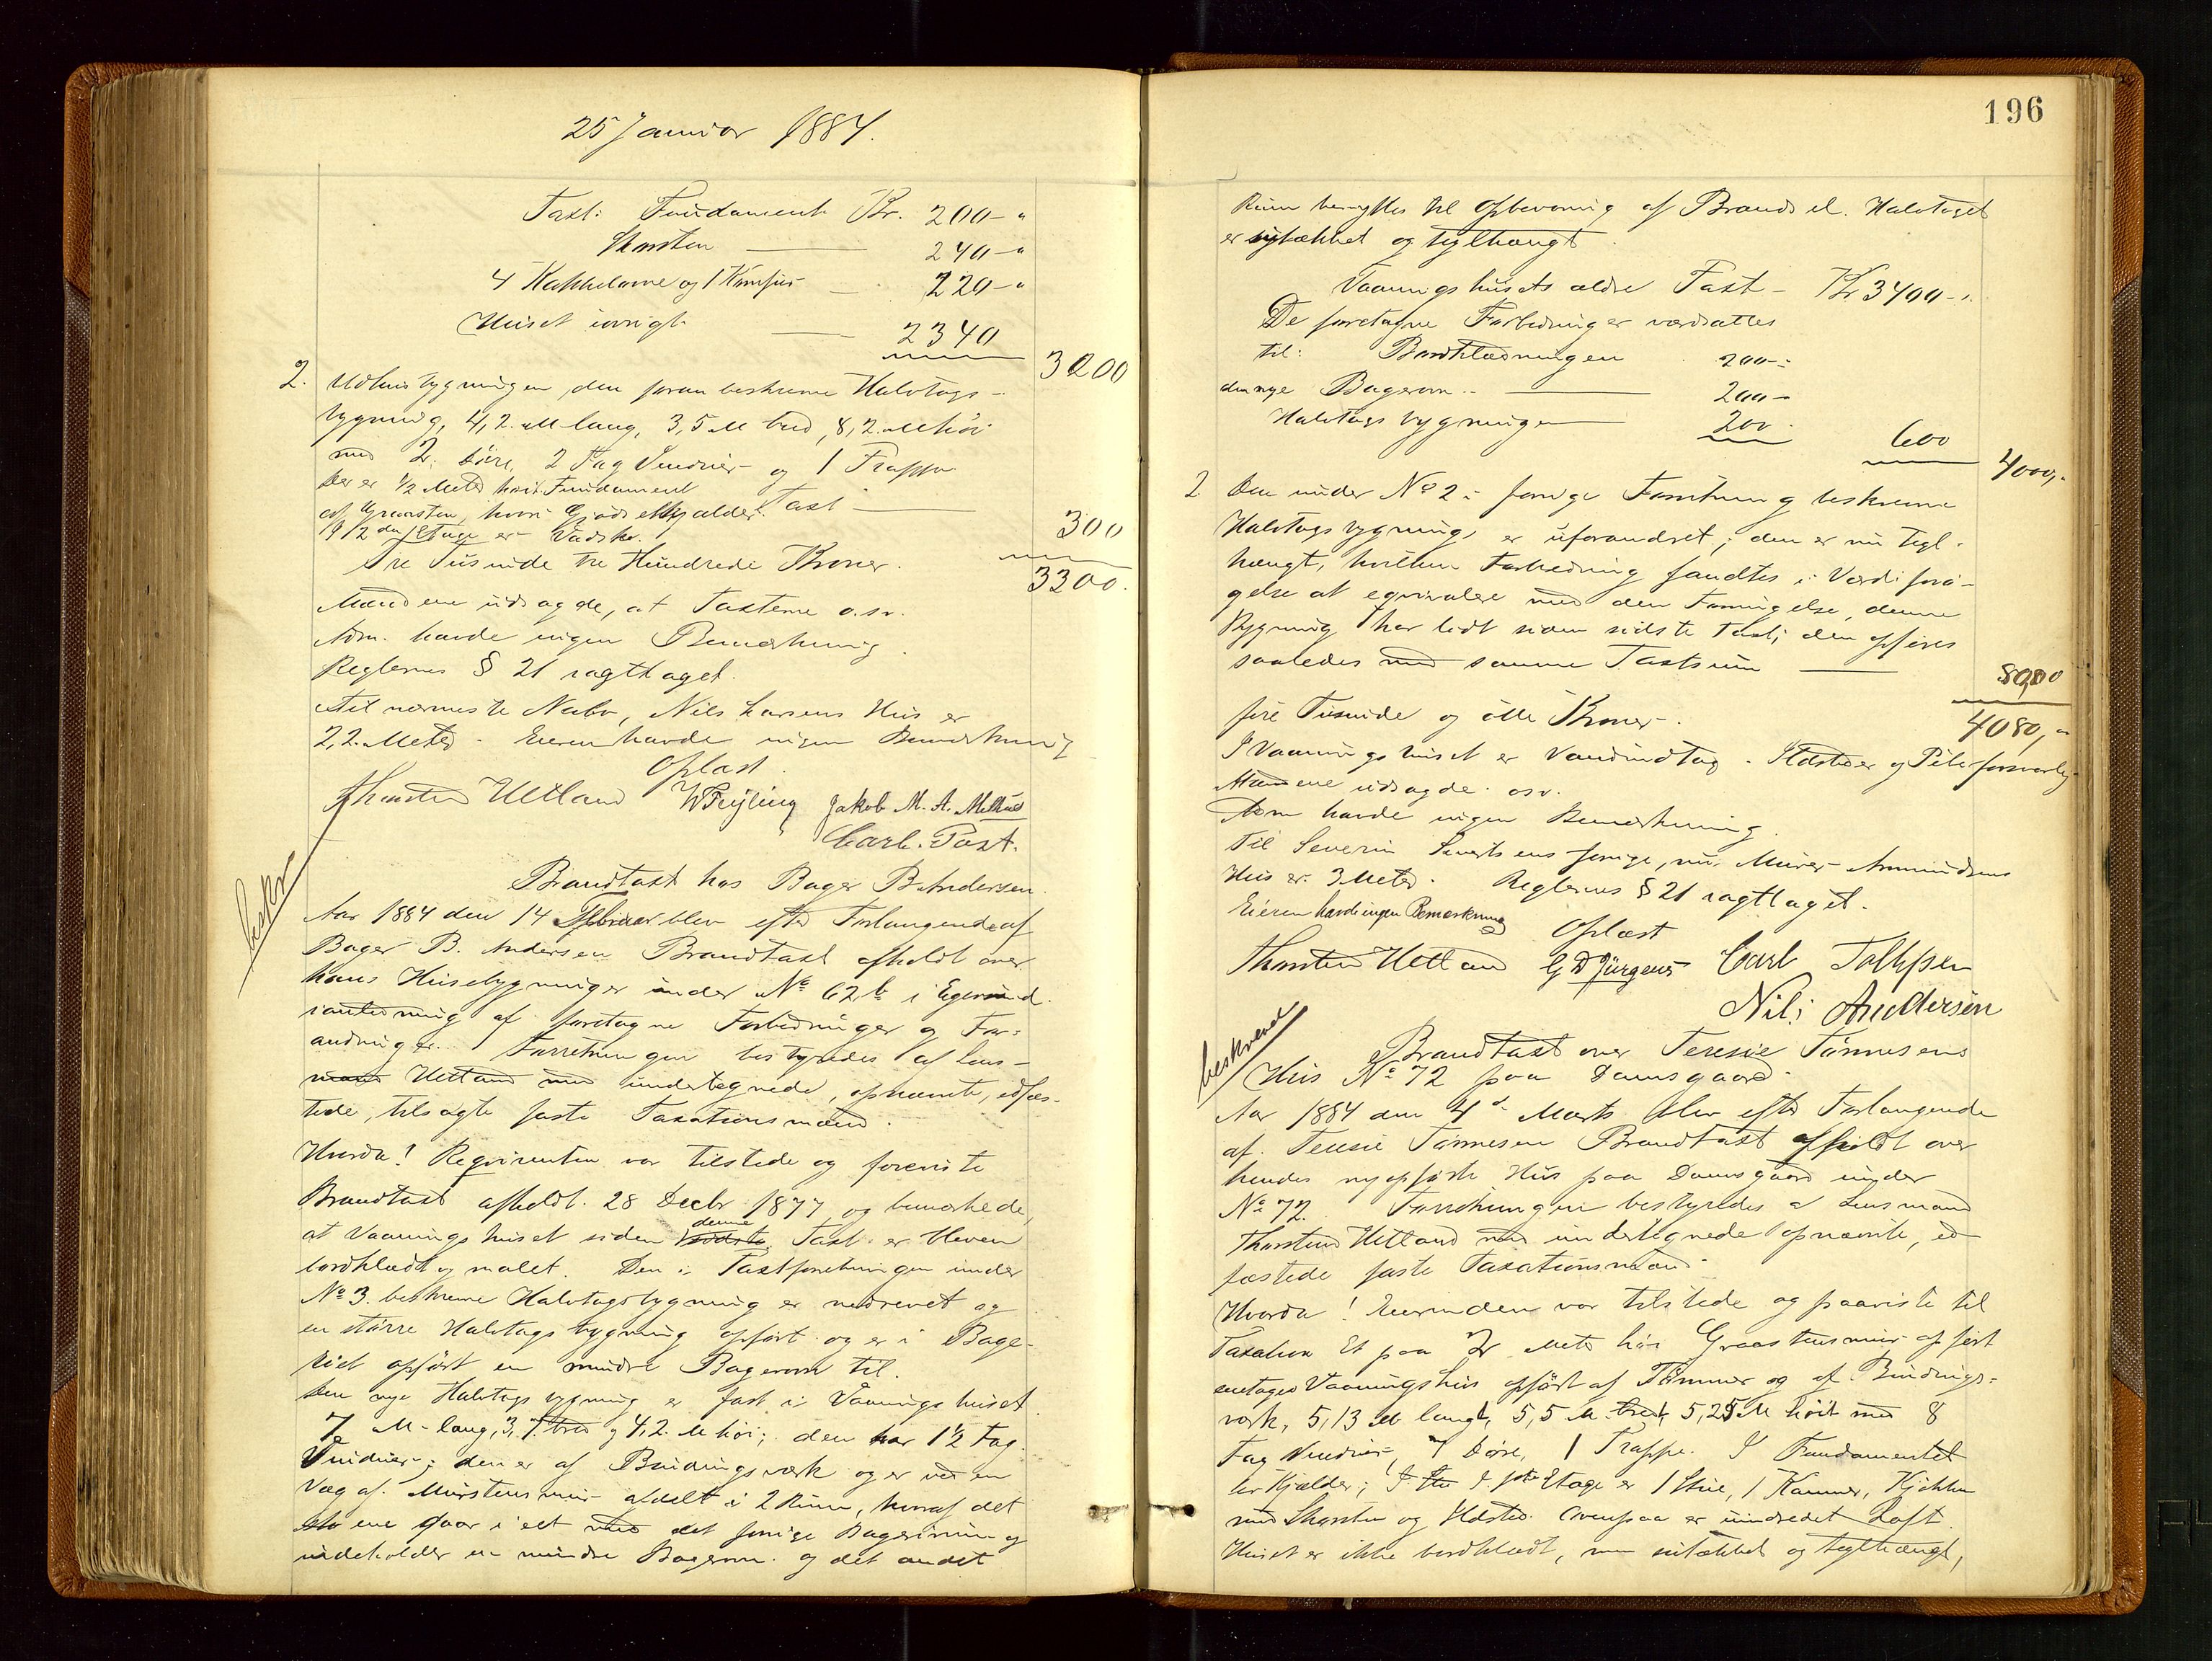 25 Januar 1884.
Taxt: Fundament Kr. 200-"
Skorsten — 240-"
4 Kakkelovne og 1 Komfur — 220-"
Huset iøvrigt — 2340
3000
2. Udhusbygningen, den foran beskrevne Halvtags-
bygning, 4,2. M lang, 3,5 M bred, 8,2. M høi
med 2 Døre, 2 Fag Vinduer og 1 Trappe
Der er 1/2 Meter høit Fundament
af Graasten, hvori Gjødselkjælder. Taxt —
300
I 2den Etage er Vedskur.
Tre Tusinde tre Hundrede Kroner.
3300.
Mændene udsagde, at Taxterne o.s.v.
Adm. havde ingen Bemærkning.
Reglernes § 21 iagttaget.
Til nærmeste Nabo, Nils Larsens Hus er
2,2. Meter. Eieren havde ingen Bemærkning
Oplæst.
Thorsten Hetland W Feyling Jakob M. A.
Carl. Post.
beskr
Brandtaxt hos Bager B. Andersen.
Aar 1884 den 14 Februar blev efter Forlangende af
Bager B. Andersen Brandtaxt afholdt over
hans Husebygninger under No 62b i Egersund
i anledning af foretagne Forbedringer og For-
andringer. Forretningen bestyredes af Lens-
mand Hetland med undertegnede, opnævnte, edfæs-
tede, tilsagte faste Taxationsmænd.
Hvorda! Reqvirenten var tilstede og foreviste
Brandtaxt afholdt 28 Decbr 1877 og bemærkede,
at Vaaningshuset siden denne sidste Taxt er bleven
bordklædt og malet. Den i Taxtforretningen under
No 3. beskrevne Halvtagsbygning er nedrevet og
en større Halvtagsbygning opført og er i Bage-
riet opført en mindre Bagerovn til.
Den nye Halvtagsbygning er fast i Vaaningshuset
7 M-lang, 3,7. bred og 4,2. M høi; den har 1 1/2 Fag
Vinduer; den er af Bindingsværk og er ved en
Væg af Murstensmur afdelt i 2 Rum, hvoraf det
ene gaar i et med det forrige Bagerirum og
indeholder en mindre Bagerovn og det andet
196
Rum benyttes til Opbevaring af Brændsel. Halvtaget
er sutækket og teglhængt.
Vaaningshusets ældre Taxt - Kr 3400-"
De foretagne Forbedringer værdsattes
til: Bordklædningen 200-
den nye Bagerovn — 200-
Halvtagsbygningen — 200
600
4000,-
2 Den under No 2 i forrige Forretning beskrevne
Halvtagsbygning er uforandret; den er nu tegl-
hængt, hvilken Forbedring fandtes i Værdiforø-
gelse at eqvivalere med den Forringelse, denne
Bygning har lidt siden sidste Taxt; den opføres
saaledes med samme Taxtsum —
80,00
fire Tusinde og otti Kroner.
4080,-
I Vaaningshuset er Vandindtag. Ildsteder og Piber forsvarlig
Mændene udsagde. osv.
Adm havde ingen Bemærkning.
Til Severin Sivertsens forrige, nu Murer Ammundsens
Hus er 3 Meter. Reglernes § 21 iagttaget.
Eieren havde ingen Bemærkning
Oplæst
Thorsten Hetland G D Jürgens Carl Tollefsen
Nils Andersen
beskrevet
Brandtaxt over Teresie Tønnesens
Hus No 72 paa Damsgaard.
Aar 1884 den 4de Marts blev efter Forlangende
af Teresie Tønnesen Brandtaxt afholdt over
hendes nyopførte Hus paa Damsgaard under
No 72. Forretningen bestyredes af Lensmand
Thorsten Hetland med undertegnede opnævnte, ed-
fæstede faste Taxationsmænd.
Hvorda! Eierinden var tilstede og paaviste til
Taxation Et paa 2 Meter høi Graastensmur opført
enetages Vaaningshus opført af Tømmer og af Bindings-
værk, 5,13 M langt, 5,5 M. bredt, 5,25 M høit med 8
Fag Vinduer, 7 Døre, 1 Trappe. I Fundamentet
er Kjælder; I 1ste Etage er 1 Stue, 1 Kammer, Kjøkken
med Skorsten og Ildsted. Ovenpaa er uindredet Loft.
Huset er ikke bordklædt, men sutækket og teglhængt,